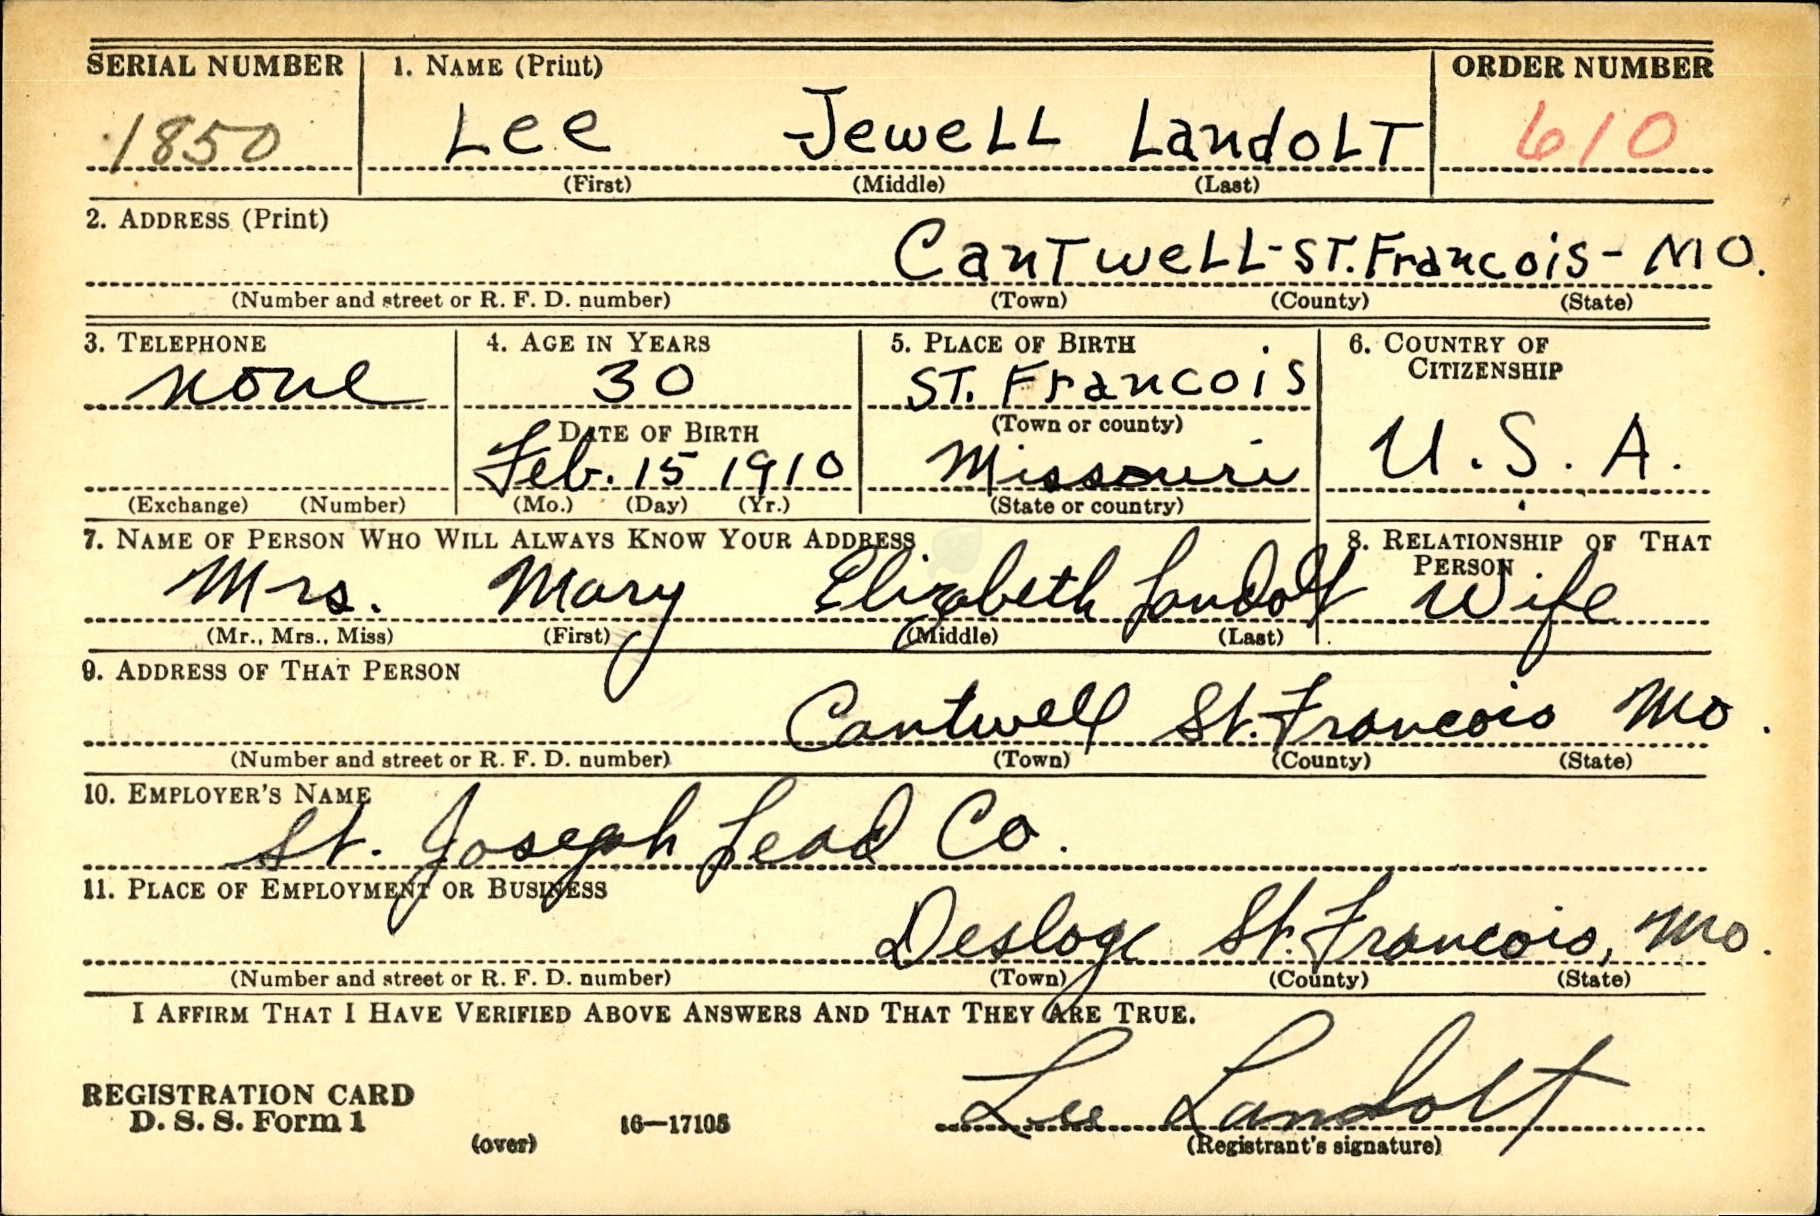 SERIAL NUMBER 1. NAME (Print) ORDER NUMBER
1850 Lee Jewell Landolt 610
(First) (Middle) (Last)
2. ADDRESS (Print)
Cantwell - St. Francois - Mo.
(Number and street or R. F. D. number) (Town) (County) (State)
3. TELEPHONE 4. AGE IN YEARS 5. PLACE OF BIRTH 6. COUNTRY OF
CITIZENSHIP
none 30 St. Francois
(Town or county)
DATE OF BIRTH
Feb. 15 1910 Missouri U.S.A.
(Exchange) (Number) (Mo.) (Day) (Yr.) (State or country)
7. NAME OF PERSON WHO WILL ALWAYS KNOW YOUR ADDRESS 8. RELATIONSHIP OF THAT
PERSON
Mrs. Mary Elizabeth Landolt Wife
(Mr., Mrs., Miss) (First) (Middle) (Last)
9. ADDRESS OF THAT PERSON
Cantwell St. Francois Mo.
(Number and street or R. F. D. number) (Town) (County) (State)
10. EMPLOYER'S NAME
St. Joseph Lead Co.
11. PLACE OF EMPLOYMENT OR BUSINESS
Desloge St. Francois, Mo.
(Number and street or R. F. D. number) (Town) (County) (State)
I AFFIRM THAT I HAVE VERIFIED ABOVE ANSWERS AND THAT THEY ARE TRUE.
REGISTRATION CARD
D. S. S. Form 1
(over) 16—17105
Lee Landolt
(Registrant's signature)